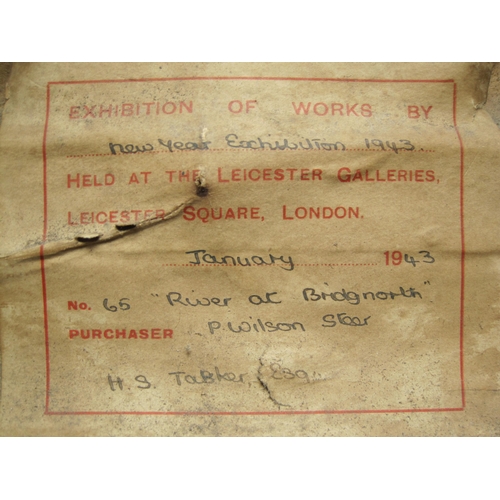 EXHIBITION OF WORKS BY
New Year Exhibition 1943.
HELD AT THE LEICESTER GALLERIES,
LEICESTER SQUARE, LONDON.
January 1943
No. 65 "River at Bridgnorth"
PURCHASER P. Wilson Steer
H. S. Esq.